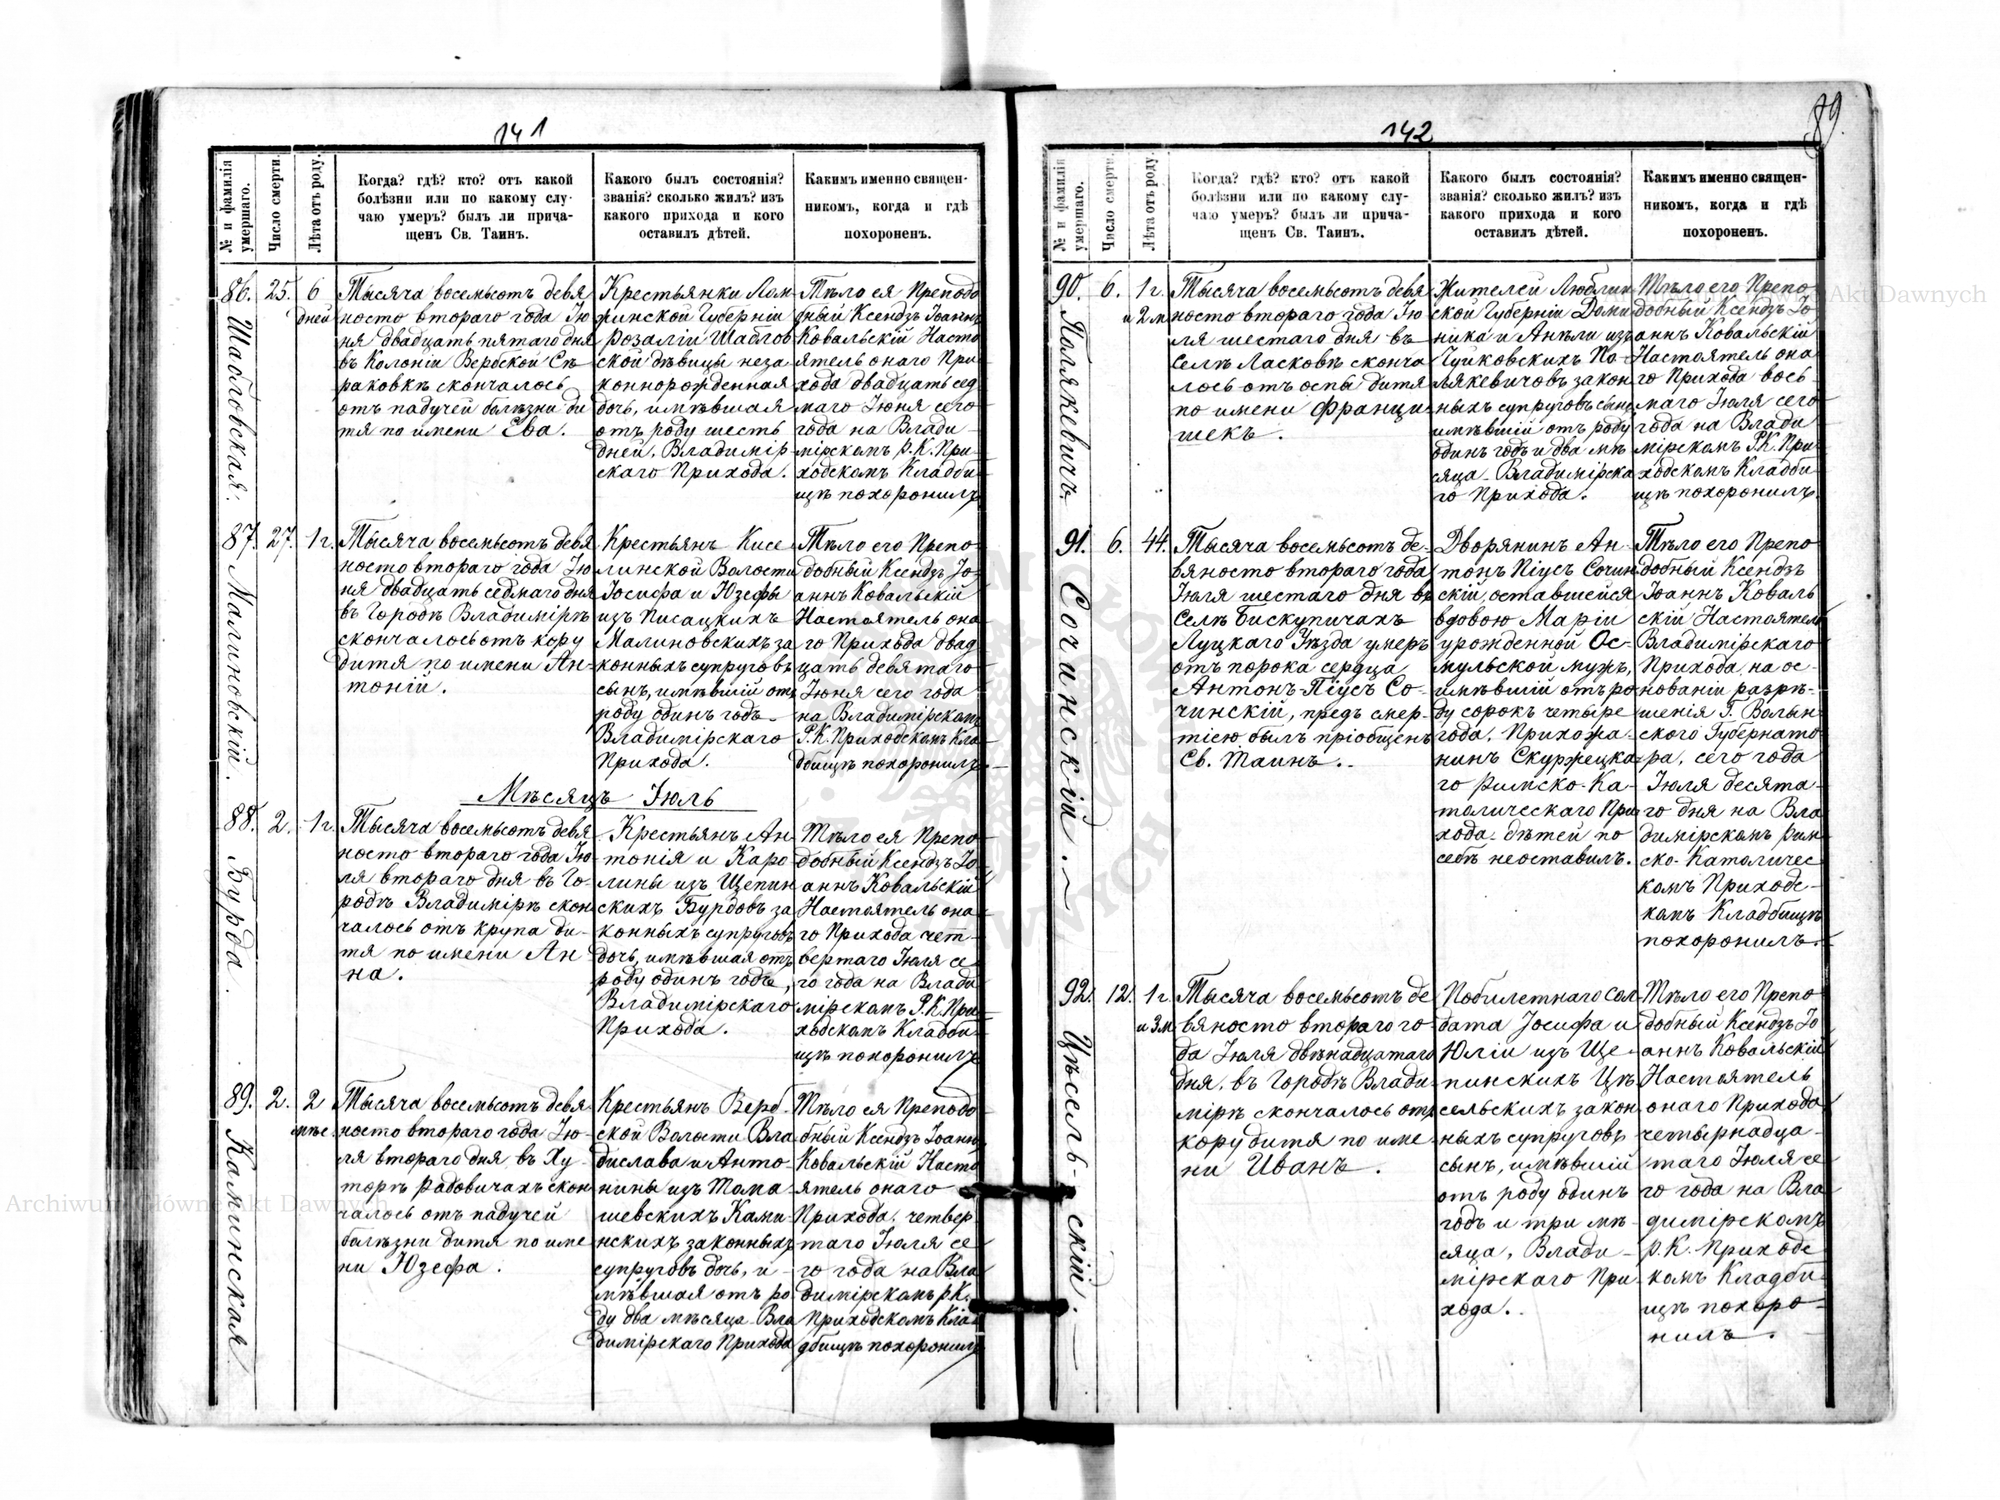 141
№ и фамилія умершаго.
Число смерти.
Лѣта отъ роду.
Когда? гдѣ? кто? отъ какой
болѣзни или по какому слу-
чаю умеръ? былъ ли прича-
щенъ Св. Таинъ.
Какого былъ состоянія?
званія? сколько жилъ? изъ
какого прихода и кого
оставилъ дѣтей.
Какимъ именно священ-
никомъ, когда и гдѣ
похороненъ.
86. Шабловская.
25.
6
дней
Тысяча восемьсотъ девя
носто втораго года Ію
ня двадцать пятаго дня
въ Колоніи Вербской Се
раковкѣ скончалось
отъ падучей болѣзни ди
тя по имени Ева.
Крестьянки Лом
жинской Губерніи
Розаліи Шаблов
ской дѣвицы неза
коннорожденная
дочь, имѣвшая
отъ роду шесть
дней. Владимір
скаго Прихода.
Тѣло ея Преподо
бный Ксендзъ Іоаннъ
Ковальскій Насто
ятель онаго При
хода двадцать сед
маго Іюня сего
года на Влади
мірскомъ Р. К. При
ходскомъ Кладби
щѣ похоронилъ
87. Малиновскій.
27.
1 г.
Тысяча восемьсотъ девя
носто втораго года Ію
ня двадцать седмаго дня
въ Городѣ Владимірѣ
скончалось отъ кору
дитя по имени Ан-
тоній.
Крестьянъ Кисе
линской Волости
Іосифа и Юзефы
изъ Писацкихъ
Малиновскихъ за
конныхъ супруговъ
сынъ, имѣвшій отъ
роду одинъ годъ
Владимірскаго
Прихода.
Тѣло его Препо
добный Ксендзъ Іо
аннъ Ковальскій
Настоятель она
го Прихода двад
цать девятаго
Іюня сего года
на Владимірскомъ
Р. К. Приходскомъ Кла
дбищѣ похоронилъ.
Мѣсяцъ Іюль
88. Бурда.
2.
1 г.
Тысяча восемьсотъ девя
носто втораго года Ію
ля втораго дня въ Го-
родѣ Владимірѣ скон
чалось отъ крупа ди-
тя по имени Ан
на.
Крестьянъ Ан
тонія и Каро
лины изъ Щепин
скихъ Бурдовъ за
конныхъ супруговъ
дочь, имѣвшая отъ
роду одинъ годъ,
Владимірскаго
Прихода.
Тѣло ея Препо
добный Ксендзъ Іо-
аннъ Ковальскій
Настоятель она
го Прихода чет
вертаго Іюля се
го года на Влади
мірскомъ Р. К. При
ходскомъ Кладби
щѣ похоронилъ
89. Каминская
2.
2
мѣс.
Тысяча восемьсотъ девя
носто втораго года Ію
ля втораго дня въ Ху-
торѣ Радовичахъ скон
чалось отъ падучей
болѣзни дитя по име
ни Юзефа.
Крестьянъ Верб
ской Волости Вла
дислава и Анто-
нины изъ Тома
шевскихъ Ками
нскихъ законныхъ
супруговъ дочь, и
мѣвшая отъ ро
ду два мѣсяца Вла
димірскаго Прихода
Тѣло ея Преподо
бный Ксендзъ Іоаннъ
Ковальскій Насто
ятель онаго
Прихода, четвер
таго Іюля се
го года на Вла
димірскомъ р. К.
Приходскомъ Кла
дбищѣ похоронилъ
142
89.
№ и фамилія умершаго.
Число смерти.
Лѣта отъ роду.
Когда? гдѣ? кто? отъ какой
болѣзни или по какому слу-
чаю умеръ? былъ ли прича-
щенъ Св. Таинъ.
Какого былъ состоянія?
званія? сколько жилъ? изъ
какого прихода и кого
оставилъ дѣтей.
Какимъ именно священ-
никомъ, когда и гдѣ
похороненъ.
90. Полякевичъ.
6.
1 г.
и 2 м
Тысяча восемьсотъ девя
носто втораго года Ію
ля шестаго дня въ
Селѣ Ласковѣ сконча
лось отъ оспы дитя
по имени Франци
шекъ.
Жителей Люблин
ской Губерніи Доми
ника и Анѣли изъ
Чуйковскихъ По-
лякевичовъ закон
ныхъ супруговъ сынъ
имѣвшій отъ роду
одинъ годъ и два мѣ
сяца Владимірска
го Прихода.
Тѣло его Препо
добный Ксендзъ Іо
аннъ Ковальскій
Настоятель она
го Прихода вось
маго Іюля сего
года на Влади
мірскомъ Р. К. При
ходскомъ Кладби
щѣ похоронилъ.
91. Сочинскій.
6.
44.
Тысяча восемьсотъ де-
вяносто втораго года
Іюля шестаго дня въ
Селѣ Бискупичахъ
Луцкаго Уѣзда умеръ
отъ порока сердца
Антонъ-Піусъ Со-
чинскій, предъ смер-
тію былъ пріобщенъ
Св. Таинъ.
Дворянинъ Ан-
тонъ Піусъ Сочин
скій, оставшейся
вдовою Маріи
урожденной Ос-
мульской мужъ,
имѣвшій отъ ро
ду сорокъ четыре
года. Прихожа-
нинъ Скуржецка
го Римско-Ка-
толическаго При
хода. дѣтей по
себѣ неоставилъ.
Тѣло его Препо
добный Ксендзъ
Іоаннъ Коваль
скій Настоятель
Владимірскаго
Прихода, на ос-
нованіи разрѣ-
шенія Г. Волын-
скаго Губернато
ра, сего года
Іюля десята-
го дня на Вла
димірскомъ Рим
ско-Католичес
комъ Приходс-
комъ Кладбищѣ
похоронилъ.
92. Цѣсельскій.
12.
1 г.
и 3 м
Тысяча восемьсотъ де
вяносто втораго го-
да Іюля двѣнадцатаго
дня, въ Городѣ Влади
мірѣ скончалось отъ
кору дитя по име
ни Иванъ.
Побилетнаго Сол
дата Іосифа и
Юліи изъ Ще
пинскихъ Цѣ
сельскихъ закон
ныхъ супруговъ
сынъ, имѣвшій
отъ роду одинъ
годъ и три мѣ-
сяца, Влади-
мірскаго При
хода.
Тѣло его Препо
добный Ксендзъ Іо
аннъ Ковальскій
Настоятель
онаго Прихода
четырнадца-
таго Іюля се
го года на Вла
димірскомъ
р. К. Приходс
комъ Кладби
щѣ похоро-
нилъ.
Archiwum Główne Akt Dawnych
Archiwum Główne Akt Dawnych